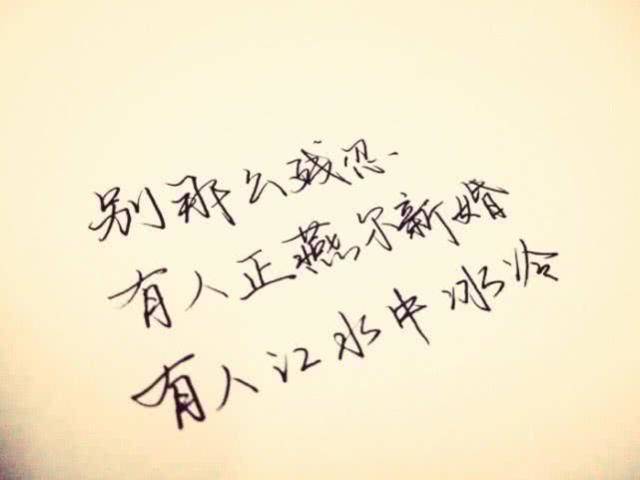 别那么残忍.
有人正燕尔新婚
有人江水中冰冷